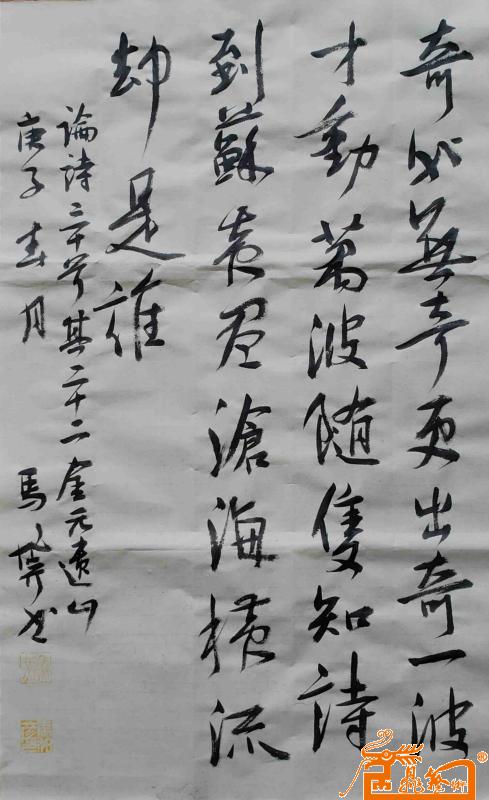 奇外無奇更出奇一波
才動萬波随隻知詩
到蘇黄盡滄海横流
却是誰
論詩三十首其二十二金元遺山
庚子春月 馬 书